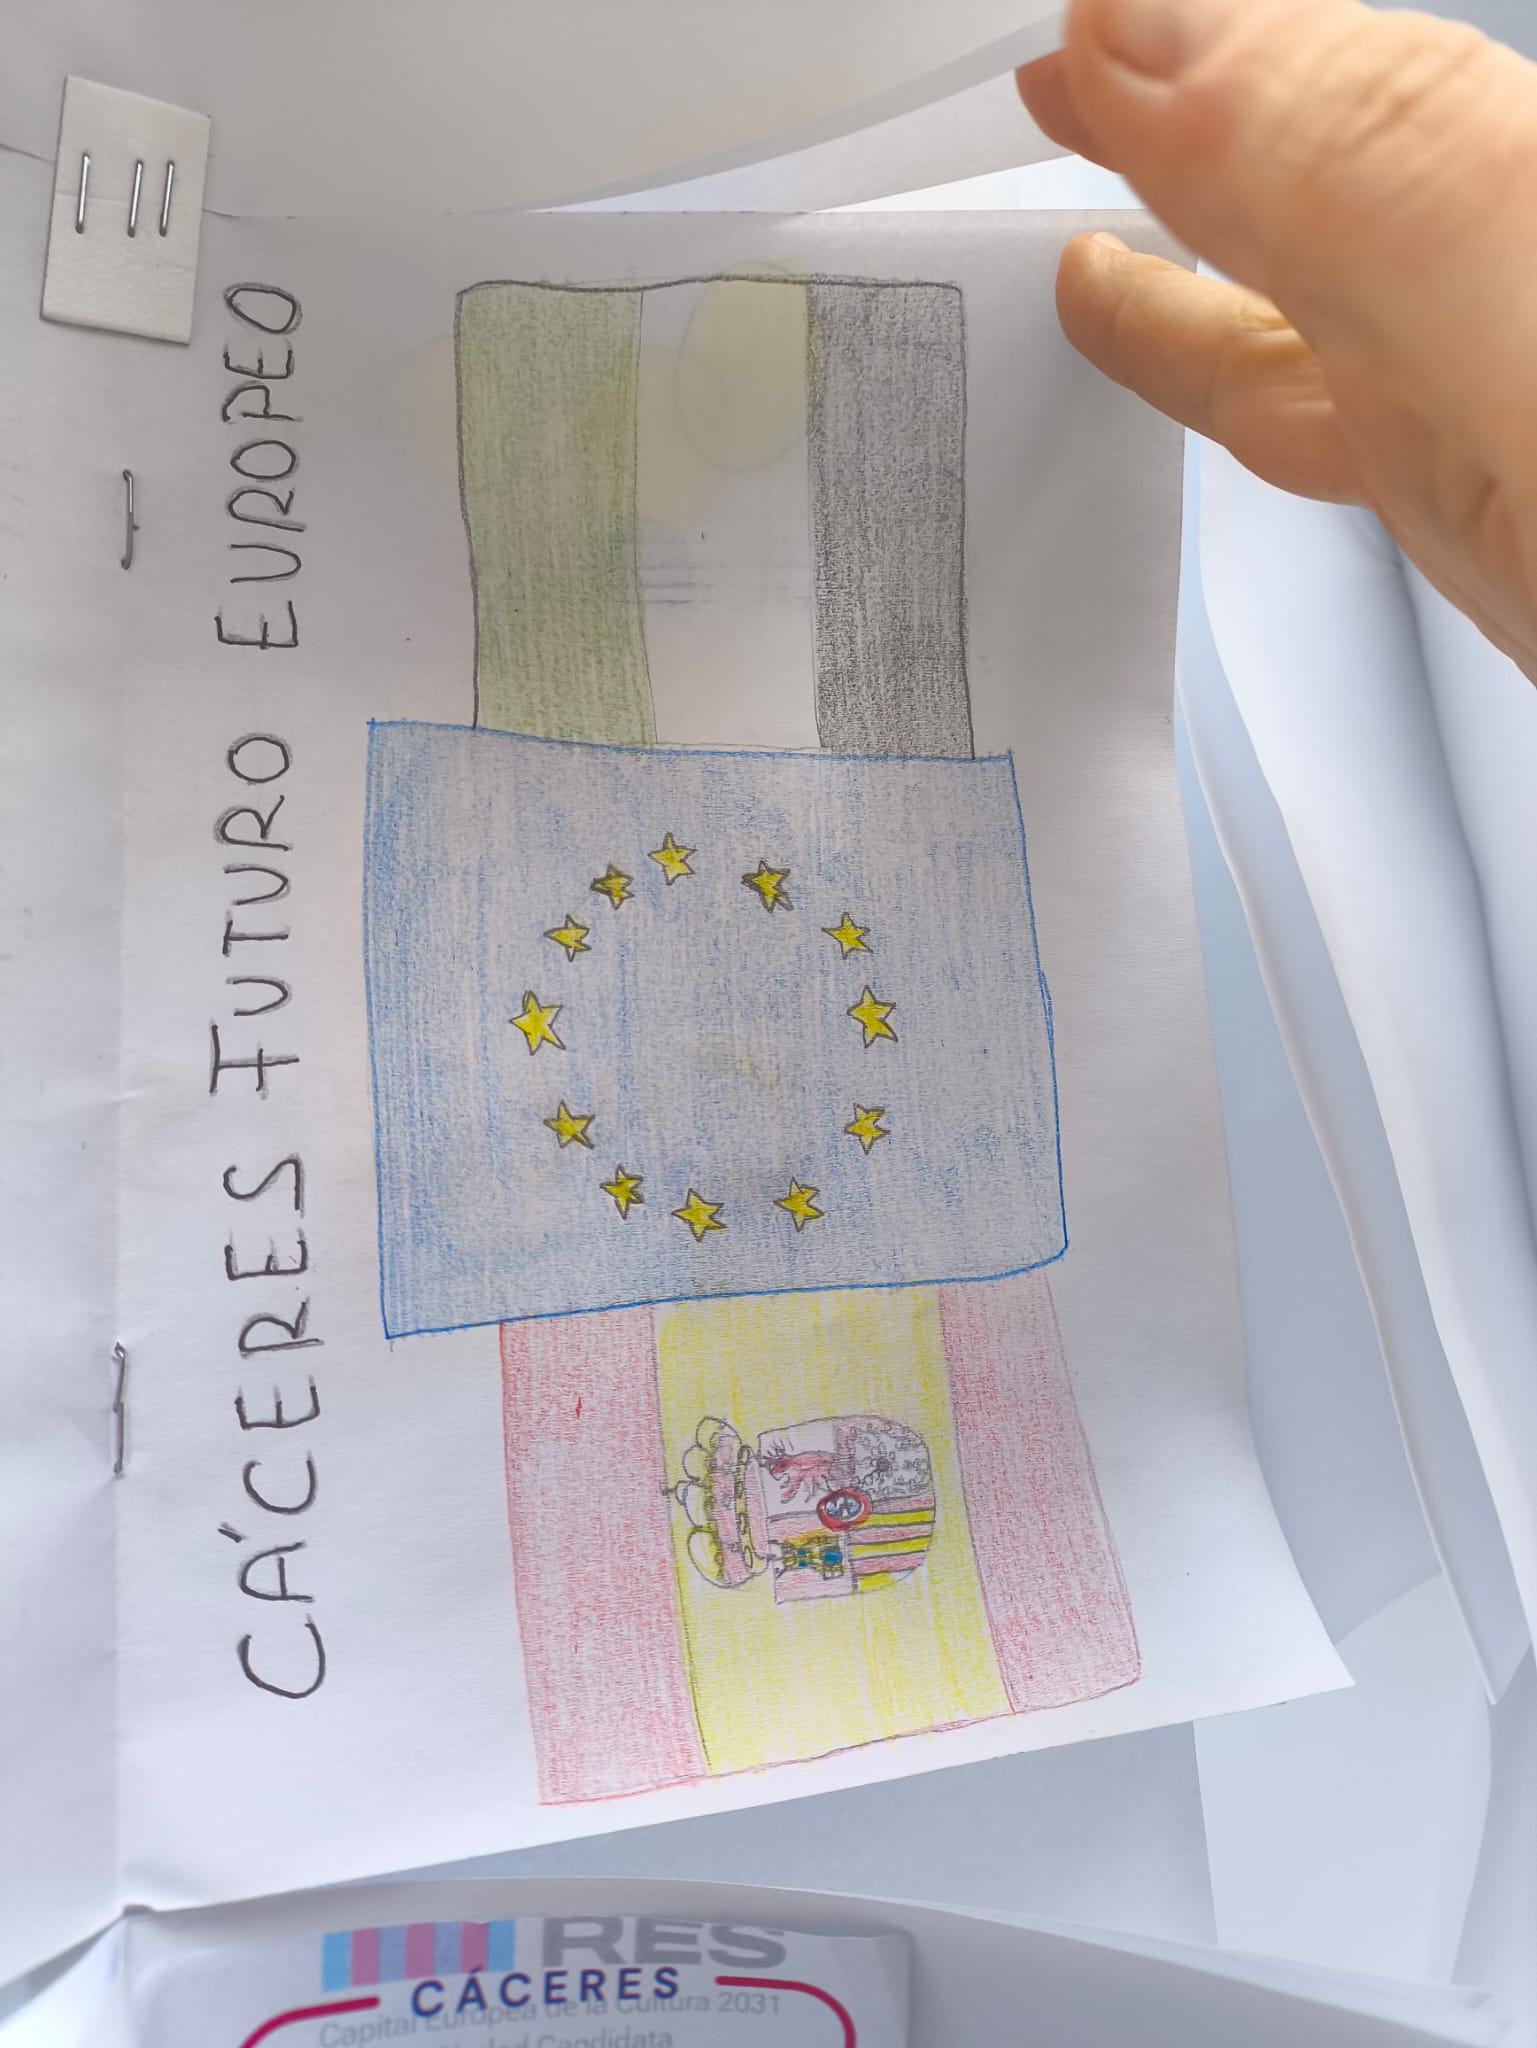 CÁCERES FUTURO EUROPEO
RES
CÁCERES
Capital Europea de la Cultura 2031
Ciudad Candidata